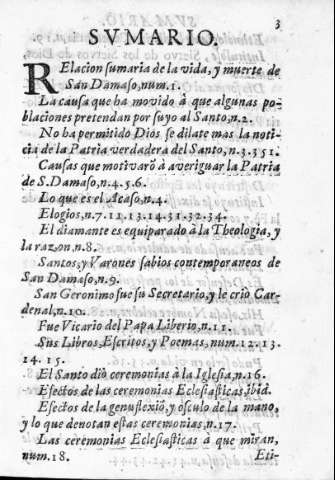 3
SVMARIO.
RElacion sumaria de la vida, y muerte de
San Damaso, num.1.
La causa que ha movido à que algunas po-
blaciones pretendan por suyo al Santo, n.2.
No ha permitido Dios se dilate mas la noti-
cia de la Patria verdadera del Santo, n.3.351.
Causas que motivarõ à averiguar la Patria
de S. Damaso, n.4.5.6.
Lo que es el Acaso, n.4.
Elogios, n.7.11.13.14.31.32.34.
El diamante es equiparado à la Theologia, y
la razon, n.8.
Santos, y Varones sabios contemporaneos de
San Damaso, n.9.
San Geronimo fue su Secretario, y le criò Car-
denal, n.10.
Fue Vicario del Papa Liberio, n.11.
Sus Libros, Escritos, y Poemas, num.12.13.
14.15.
El Santo diò ceremonias à la Iglesia, n.16.
Efectos de las ceremonias Eclesiasticas, ibid.
Efectos de la genuflexiõ, y osculo de la mano,
y lo que denotan estas ceremonias, n.17.
Las ceremonias Eclesiasticas à que miran,
num.18.
Eti-